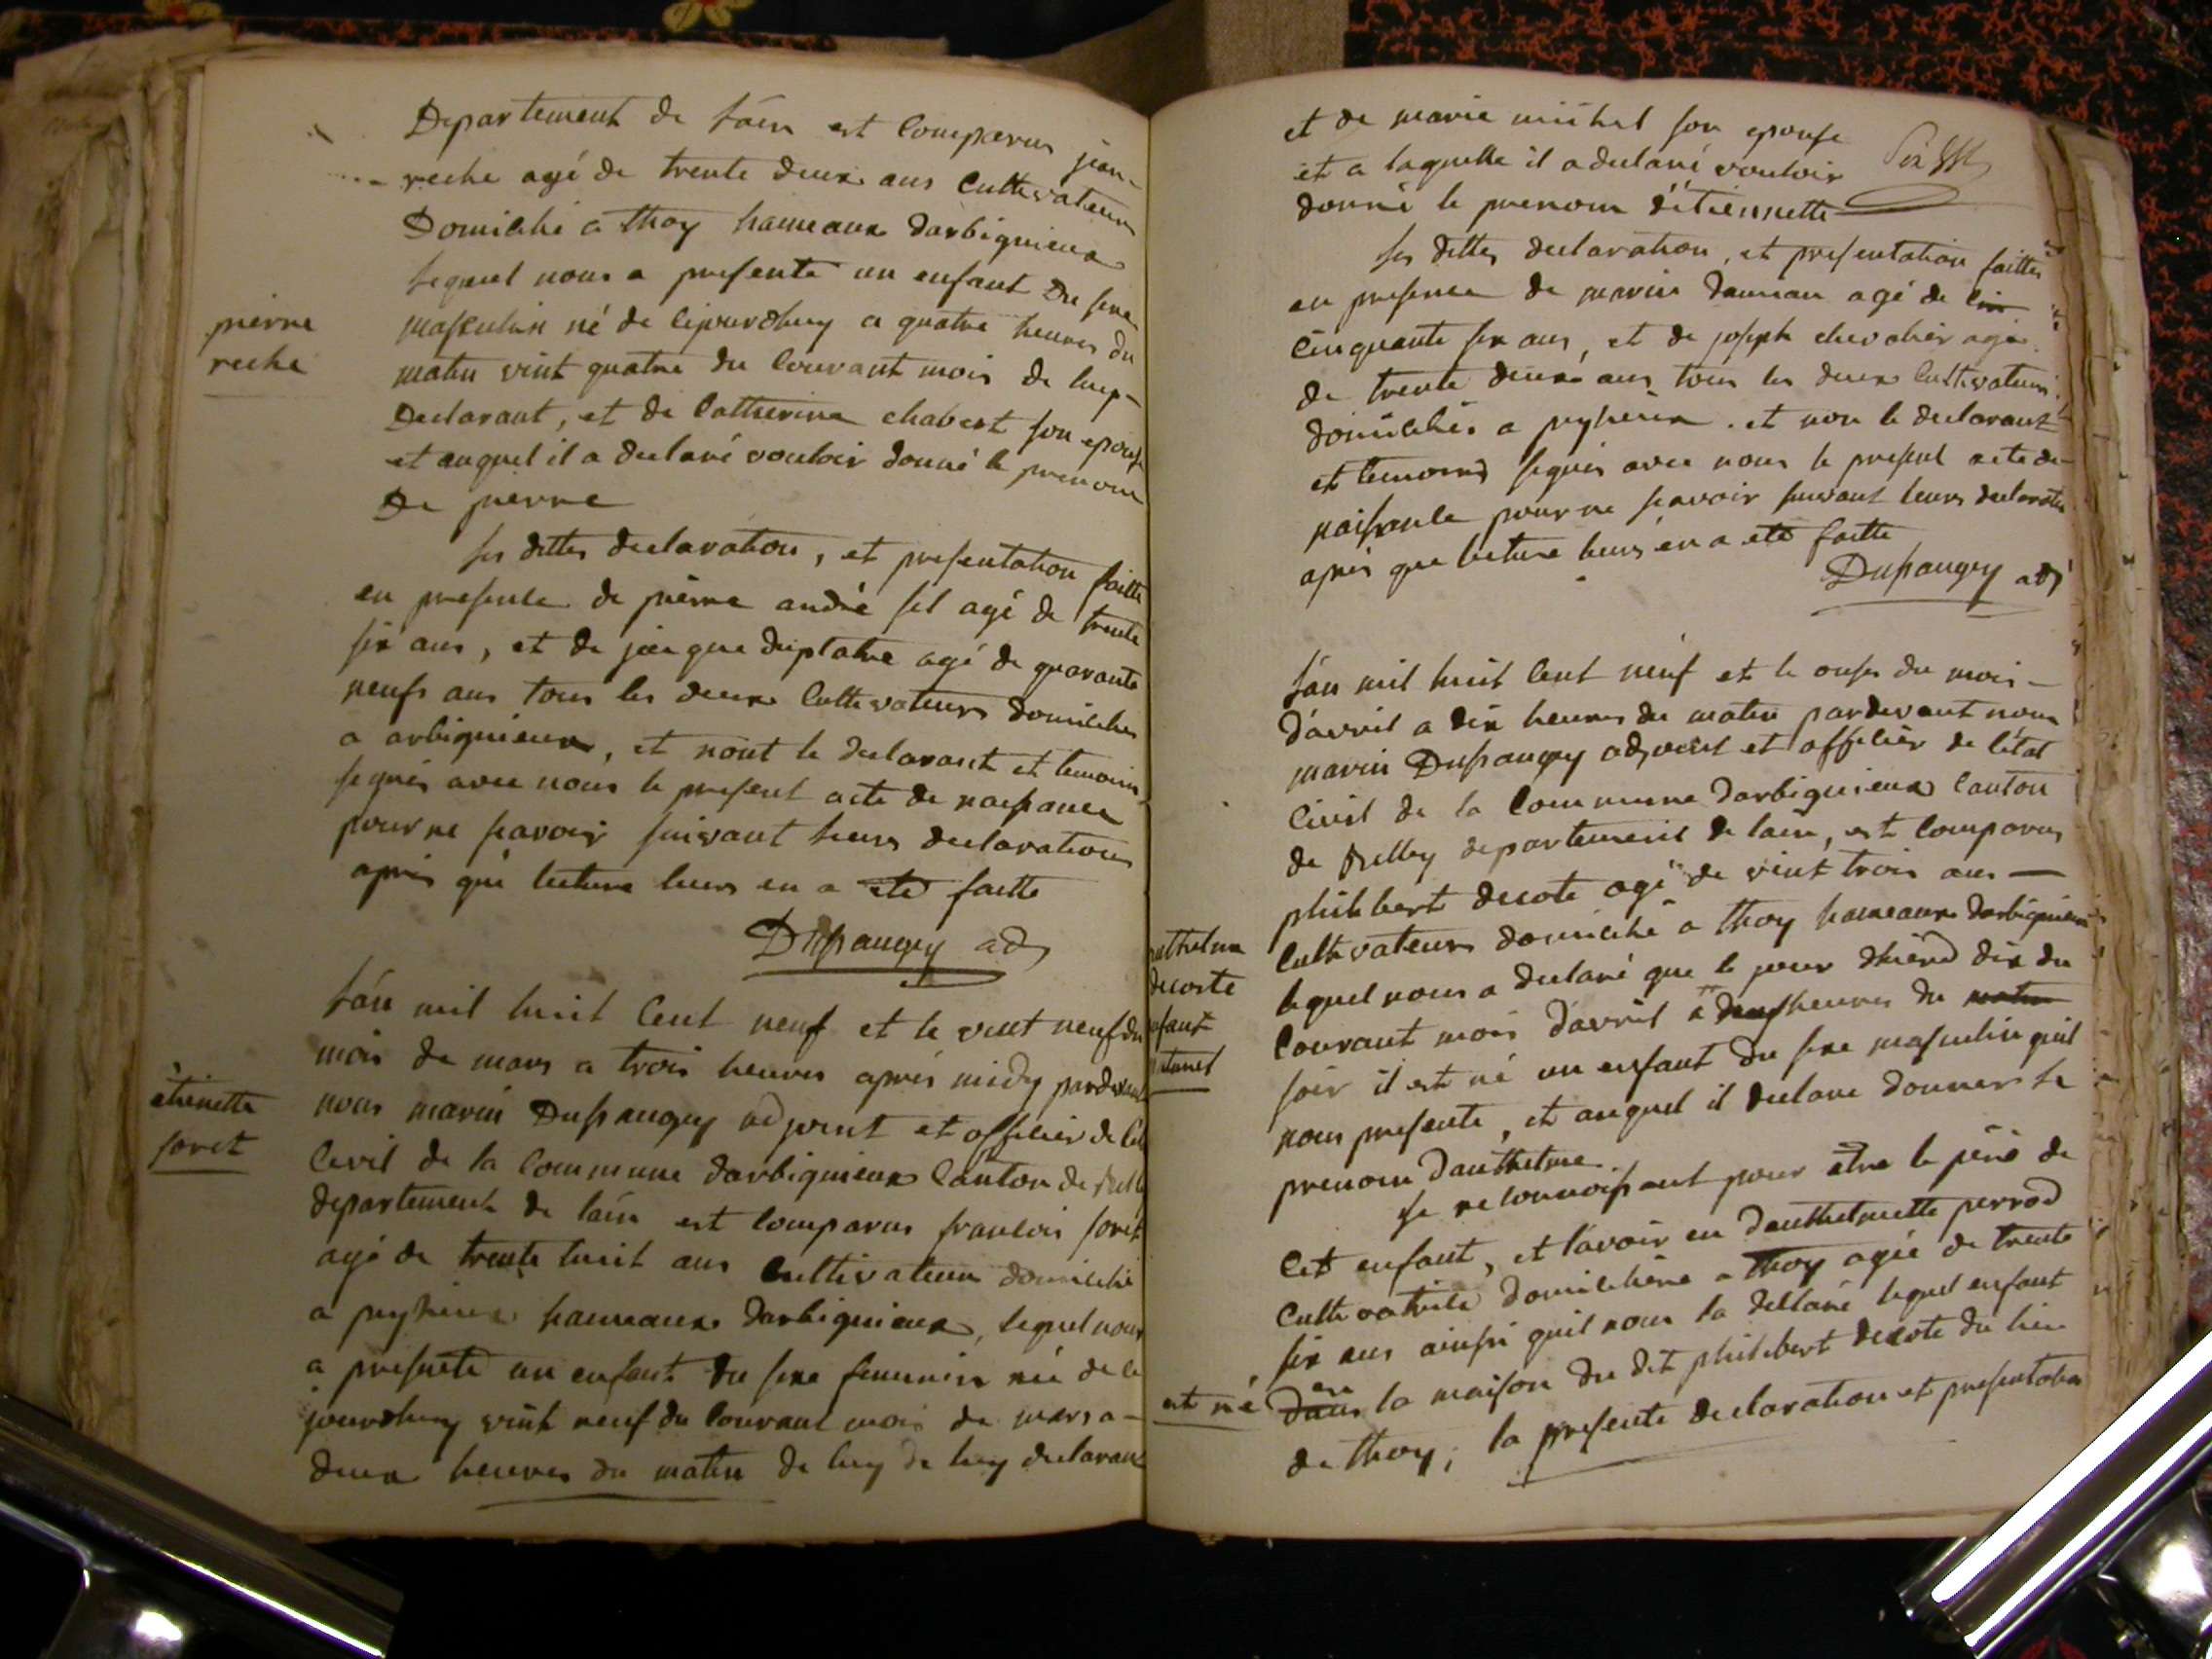 Departement de lain est Comparus jean
reche agé de trente deux ans Cultivateur
Domicilié a thoy hameaux darbignieux
lequel nous a presenté un enfant Du sexe
masculin né de cejourdhuy a quatre heures du
matin vint quatre du Courvant mois de luy
Declarant, et de Catherine chabert son epouse
et auquel il a declaré vouloir donné le prenom
De pierre
pierre
reche
les dittes declaration, et presentation faitte
en presence de pierre andré fil agé de trente
six ans, et de jacque duplatre agé de quarante
neufs ans tous les deux Cultivateurs domiciliés
a arbignieux, et nont le declarant et temoins
signés avec nous le present acte de naissance
pour ne scavoir suivant leurs declarations
aprés que lecture leurs en a eté faitte
Dupaugey adj
lán mil huit Cent neuf et le vint neuf du
mois de mars a trois heures aprés midy pardevant
nous marin Dupaugey adjoint et officier de l'etat
Civil de la Commune darbignieux Canton de belle
departement de laín est Comparus francois foret
agé de trente huit ans Cultivateur domicilié
a peyzieux hameaux darbignieux, lequel nous
a presenté un enfant du sexe feminin née de ce
jourdhuy vint neuf du Courant mois de mars a
deux heures du matin de luy de luy declarant
étienette
foret
et de marie michel son epouse
et a laquelle il a declaré vouloir
donné le prenom d'étiennette
les dittes declaration, et presentation faittes
en presence de marin daunan agé de cin
Cinquante six ans, et de joseph chevalier agé
de trente deux ans tous les deux Cultivateurs
domiciliés a peyzieux. et non le declarant
et temoins signés avec nous le present acte de
naissance pour ne scavoir suivant leurs declarations
aprés que lecture leurs en a eté faitte
Dupaugey adj
lán mil huit Cent neuf et le onze du mois
d'avril a dix heures du matin pardevant nous
marin Dupaugey adjoint et officier de l'état
Civil de la Commune darbignieux Canton
de belley departement de lain, est Comparus
philibert decote agé de vint trois ans
Cultivateurs domicilié a thoy hameaux darbignieux
lequel nous a declaré que le jour dhiérd dix du
Courant mois d'avril a heures du matin
soir il est né un enfant du sexe masculin quil
nous presente, et auquel il declare donner le
prenom d'anthelme.
se reconnoissant pour etre le péré de
Cet enfant, et l'avoir eu d'anthelmette perrod
Cultivatrice domiciliére a thoy agée de trente
six ans ainsi quil nous la declaré lequel enfant
est né dans en la maison du dit philibert decote du lieu
de thoy; la presente declaration et presentation
anthelme
decoste
enfant
naturel